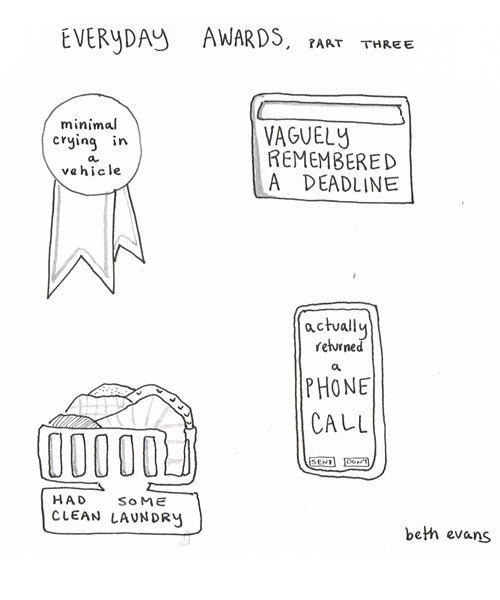 EVERYDAY AWARDS, PART THREE
minimal
crying in
a
vehicle
VAGUELY
REMEMBERED
A DEADLINE
actually
returned
a
PHONE
CALL
SEND DON'T
HAD SOME
CLEAN LAUNDRY
beth evans